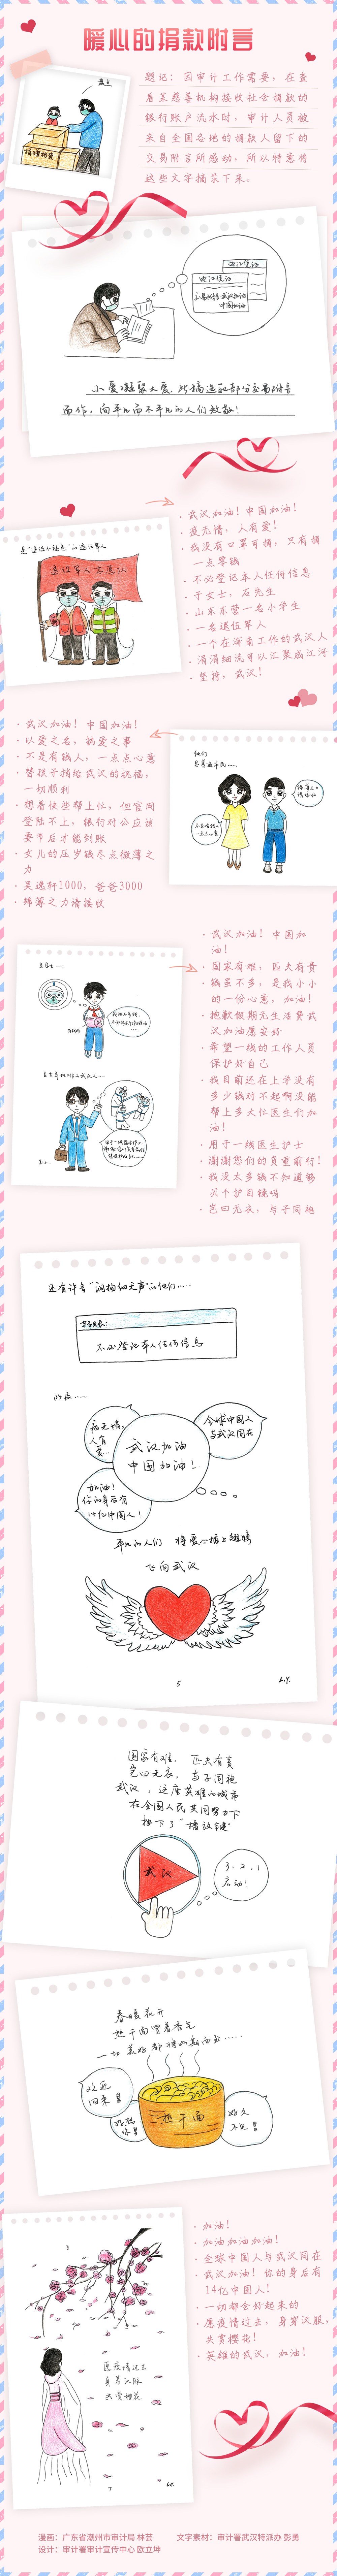 暖心的捐款附言
题记：因审计工作需要，在查
看某慈善机构接收社会捐款的
银行账户流水时，审计人员被
来自全国各地的捐款人留下的
交易附言所感动，所以特意将
这些文字摘录下来。
捐赠物资
武汉加油
中国加油
小爱凝聚大爱，此稿选取部分交易附言
而作，向平凡而不平凡的人们致敬！
· 武汉加油！中国加油！
· 疫无情，人有爱！
· 我没有口罩可捐，只有捐
一点零钱
· 不必登记本人任何信息
· 于女士，石先生
· 山东东营一名小学生
· 一名退伍军人
· 一个在海南工作的武汉人
· 涓涓细流可以汇聚成江河
· 坚持，武汉！
是“退伍不褪色”的退伍军人
退伍军人志愿队
· 武汉加油！中国加油！
· 以爱之名，执爱之事
· 不是有钱人，一点点心意
· 替孩子捐给武汉的祝福，
一切顺利
· 想着快些帮上忙，但官网
登陆不上，银行对公应该
要节后才能到账
· 女儿的压岁钱尽点微薄之
力
· 吴逸轩1000，爸爸3000
· 绵薄之力请接收
他们
是普通市民……
· 武汉加油！中国加
油！
· 国家有难，匹夫有责
· 钱虽不多，是我小小
的一份心意，加油！
· 抱歉假期无生活费武
汉加油愿安好
· 希望一线的工作人员
保护好自己
· 我目前还在上学没有
多少钱对不起啊没能
帮上多大忙医生们加
油！
· 用于一线医生护士
· 谢谢您们的负重前行！
· 我没太多钱不知道够
买个护目镜吗
· 岂曰无衣，与子同袍
还有许多“润物细无声”的他们……
不必登记本人任何信息
疫无情，
人有
爱…
武汉加油
中国加油！
全球中国人
与武汉同在
加油！
你的身后有
14亿中国人！
平凡的人们 将爱心插上翅膀
飞向武汉
5
国家有难，匹夫有责
岂曰无衣，与子同袍
武汉，这座英雄的城市
在全国人民共同努力下
按下了“播放键”
武汉
3、2、1
启动！
春暖花开
热干面冒着香气
一切美好都将如期而至……
欢迎
回来！！
好想
你！！
热干面
好久
不见！！
· 加油！
· 加油加油加油！
· 全球中国人与武汉同在
· 武汉加油！你的身后有
14亿中国人！
· 一切都会好起来的
· 愿疫情过去，身穿汉服，
共赏樱花！
· 英雄的武汉，加油！
愿疫情过去
身着汉服
共赏樱花
7
漫画：广东省潮州市审计局 林芸
文字素材：审计署武汉特派办 彭勇
设计：审计署审计宣传中心 欧立坤